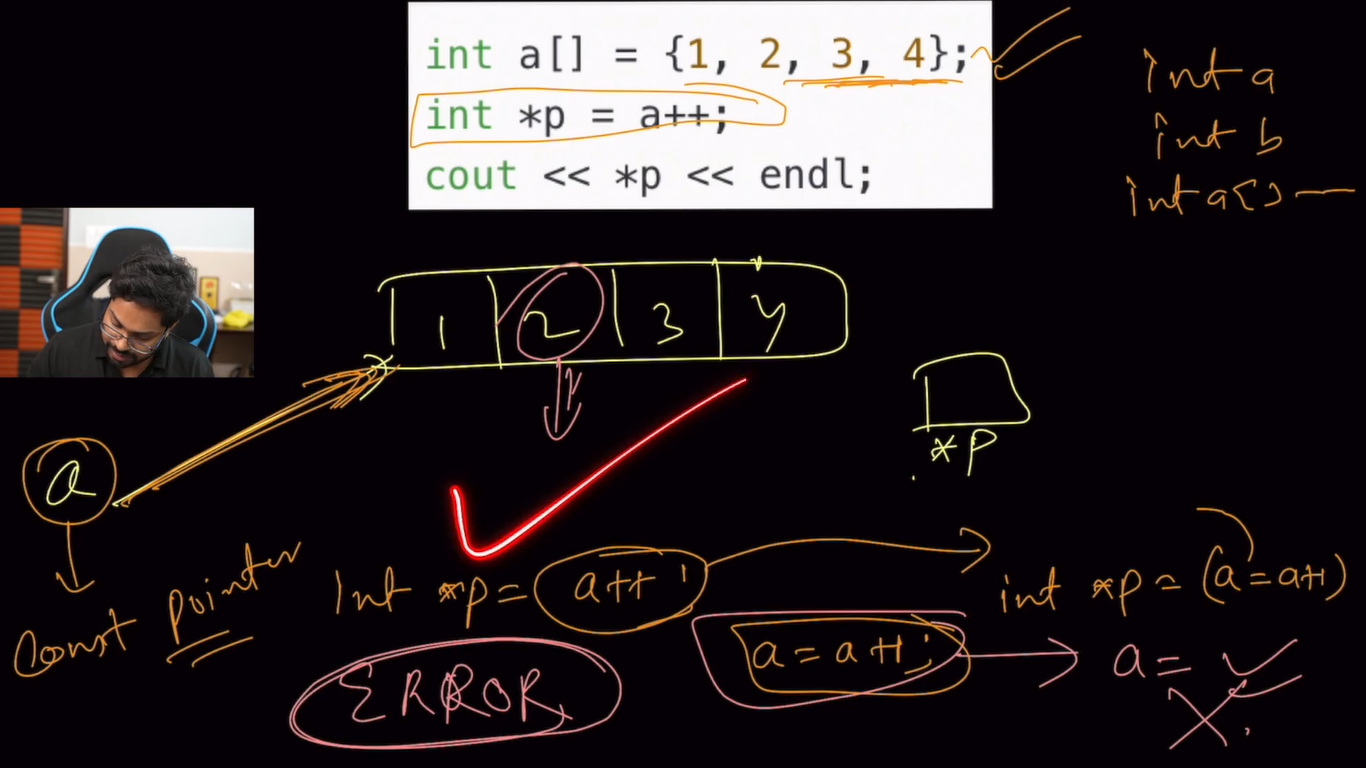 int a[] = {1, 2, 3, 4};
int *p = a++;
cout << *p << endl;
int a
int b
int a[]
1 2 3 4
*p
a
const pointer
int *p = a++;
int *p = (a = a+1)
a = a+1;
a =
ERROR